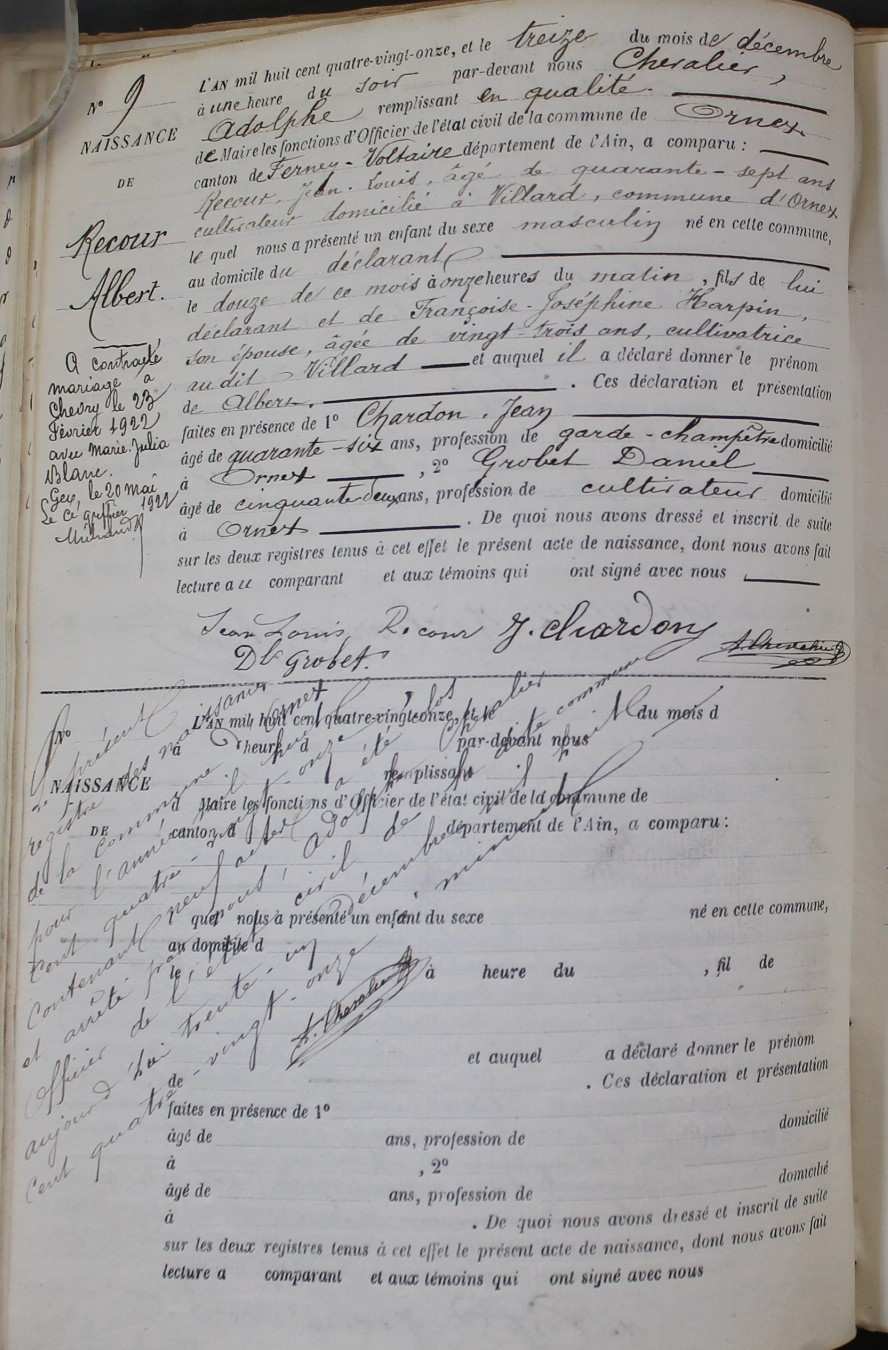 N° 9
NAISSANCE
DE
Recour
Albert.
A contracté
mariage à
Chevry le 23
Février 1922
avec Marie-Julia
Blanc.
Gex, le 20 Mai 1922
Le Cé greffier
L'AN mil huit cent quatre-vingt-onze, et le treize du mois de décembre
à une heure du soir par-devant nous Chevalier,
Adolphe remplissant en qualité.
de Maire les fonctions d'Officier de l'état civil de la commune de Ornex
canton de Ferney-Voltaire département de l'Ain, a comparu :
Recour, Jean-Louis, âgé de quarante-sept ans
cultivateur domicilié à Villard, commune d'Ornex
lequel nous a présenté un enfant du sexe masculin né en cette commune,
au domicile du déclarant
le douze de ce mois à onze heures du matin, fils de lui
déclarant et de Françoise-Joséphine Harpin,
son épouse, âgée de vingt-trois ans, cultivatrice
au dit Villard et auquel il a déclaré donner le prénom
de Albert. Ces déclaration et présentation
faites en présence de 1° Chardon, Jean
âgé de quarante-six ans, profession de garde-champêtre domicilié
à Ornex , 2° Grobet Daniel
âgé de cinquante deux ans, profession de cultivateur domicilié
à Ornex . De quoi nous avons dressé et inscrit de suite
sur les deux registres tenus à cet effet le présent acte de naissance, dont nous avons fait
lecture au comparant et aux témoins qui ont signé avec nous
Jean Louis Recour J. Chardon
Dl Grobet. A. Chevalier
N°
NAISSANCE
DE
L'AN mil huit cent quatre-vingt-onze, et le du mois d
à heure d par-devant nous
remplissant
d Maire les fonctions d'Officier de l'état civil de la commune de
canton d département de l'Ain, a comparu :
l quel nous a présenté un enfant du sexe né en cette commune,
au domicile d
le à heure du , fil de
et auquel a déclaré donner le prénom
de . Ces déclaration et présentation
faites en présence de 1°
âgé de ans, profession de domicilié
à , 2°
âgé de ans, profession de domicilié
à . De quoi nous avons dressé et inscrit de suite
sur les deux registres tenus à cet effet le présent acte de naissance, dont nous avons fait
lecture a comparant et aux témoins qui ont signé avec nous
Le présent
registre des naissances
de la commune d'Ornex
pour l'année mil huit
cent quatre-vingt-onze
contenant neuf actes a été clos
et arrêté par nous, Adolphe Chevalier
officier de l'état civil de la dite commune
aujourd'hui trente-un décembre mil huit
cent quatre-vingt-onze à minuit
A. Chevalier